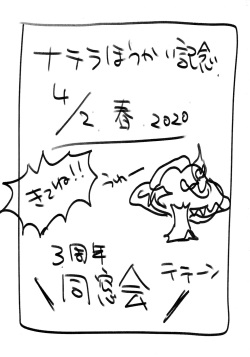 ナテラほうかい記念
4/2 春 2020
きてね!!
うわー
3周年
テテーン
同窓会